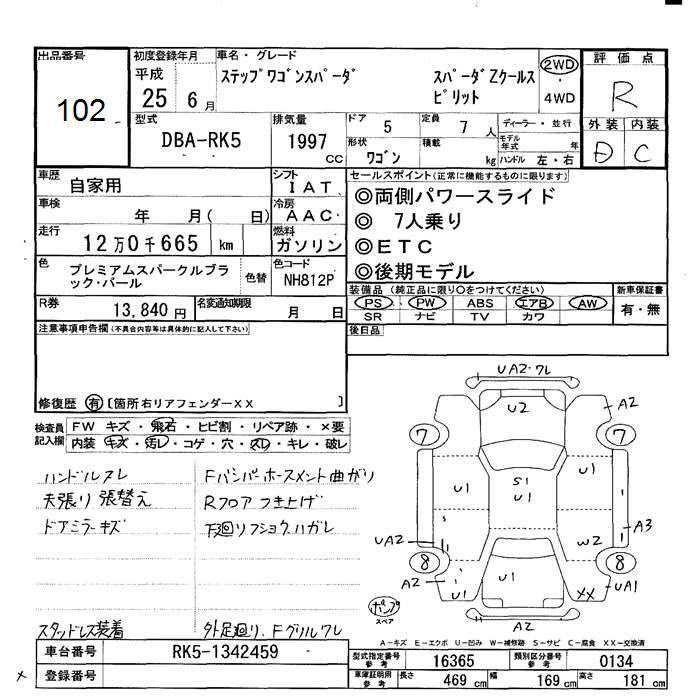 出品番号
102
初度登録年月
平成
25 年 6 月
車名・グレード
ステップワゴンスパーダ
スパーダZクールス
ピリット
2WD
・
4WD
評価点
R
外装 内装
D C
型式
DBA-RK5
排気量
1997
CC
ドア
5
定員
7 人
形状
ワゴン
積載
kg
ディーラー・並行
モデル年式 年
ハンドル 左・右
車歴
自家用
シフト
IAT
車検
年 月( 日)
冷房
AAC
走行
12万0千665 km
燃料
ガソリン
色
プレミアムスパークルブラ
ック・パール
色替
色コード
NH812P
R券
13,840 円
名変通知期限
月 日
セールスポイント(正常に機能するものに限ります)
◎両側パワースライド
◎ 7人乗り
◎ETC
◎後期モデル
装備品 (純正品に限り○をつけてください)
PS PW ABS エアB AW
SR ナビ TV カワ
新車保証書
有・無
後日品
注意事項申告欄(不具合内容等は具体的に記入して下さい)
修復歴 有 〔箇所右リアフェンダーXX 〕
検査員
記入欄
FW キズ・飛石・ヒビ割・リペア跡・×要
内装 キズ・汚レ・コゲ・穴・スレ・キレ・破レ
ハンドルスレ
天張り張替え
ドアミラーキズ
スタッドレス装着
Fバンパーホースメント曲がり
Rフロアつき上げ
下廻りフショクハガレ
外足廻り、Fグリルワレ
UA2・ワレ
U2
A2
7
7
U1
S1
U1
U1
UA2
A3
W2
8
8
A2
U1
U1
XX
UA1
A2
ポンプ
スペア
A-キズ E-エクボ U-凹み W-補修跡 S-サビ C-腐食 XX-交換済
車台番号
RK5-1342459
登録番号
×
型式指定番号
参考
16365
類別区分番号
参考
0134
車庫証明用
参考
長さ
469 cm
幅
169 cm
高さ
181 cm